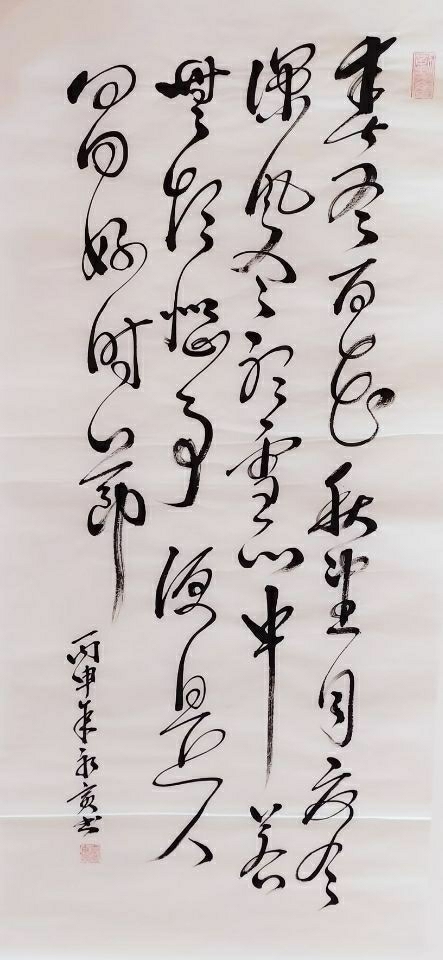 春有百花秋望月夏有
凉风冬听雪心中若
无烦恼事便是人
间好时节
丙申年永书